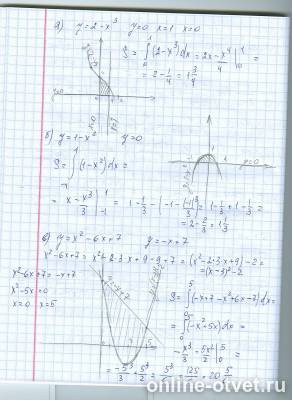 а) y = 2 - x³   y=0   x=1   x=0
S = ∫₀¹ (2 - x³) dx = 2x - x⁴/4 |₀¹ =
= 2 - 1/4 = 1 3/4
y=0
x=0
x=1
б) y = 1 - x²   y=0
S = ∫₋₁¹ (1 - x²) dx =
= x - x³/3 |₋₁¹ = 1 - 1/3 - (-1 - (-1)³/3) = 1 - 1/3 + 1 - 1/3 =
= 2 - 2/3 = 1 1/3
y=0
в) y = x² - 6x + 7   y = -x + 7
x² - 6x + 7 = x² - 2·3x + 9 - 9 + 7 = (x² - 2·3x + 9) - 2 =
= (x - 3)² - 2
x² - 6x + 7 = -x + 7
x² - 5x = 0
x = 0   x = 5
y = -x + 7
S = ∫₀⁵ (-x + 7 - x² + 6x - 7) dx =
= ∫₀⁵ (-x² + 5x) dx =
= -x³/3 + 5x²/2 |₀⁵ =
= -5³/3 + 5³/2 = 5³/6 = 125/6 = 20 5/6
online-otvet.ru